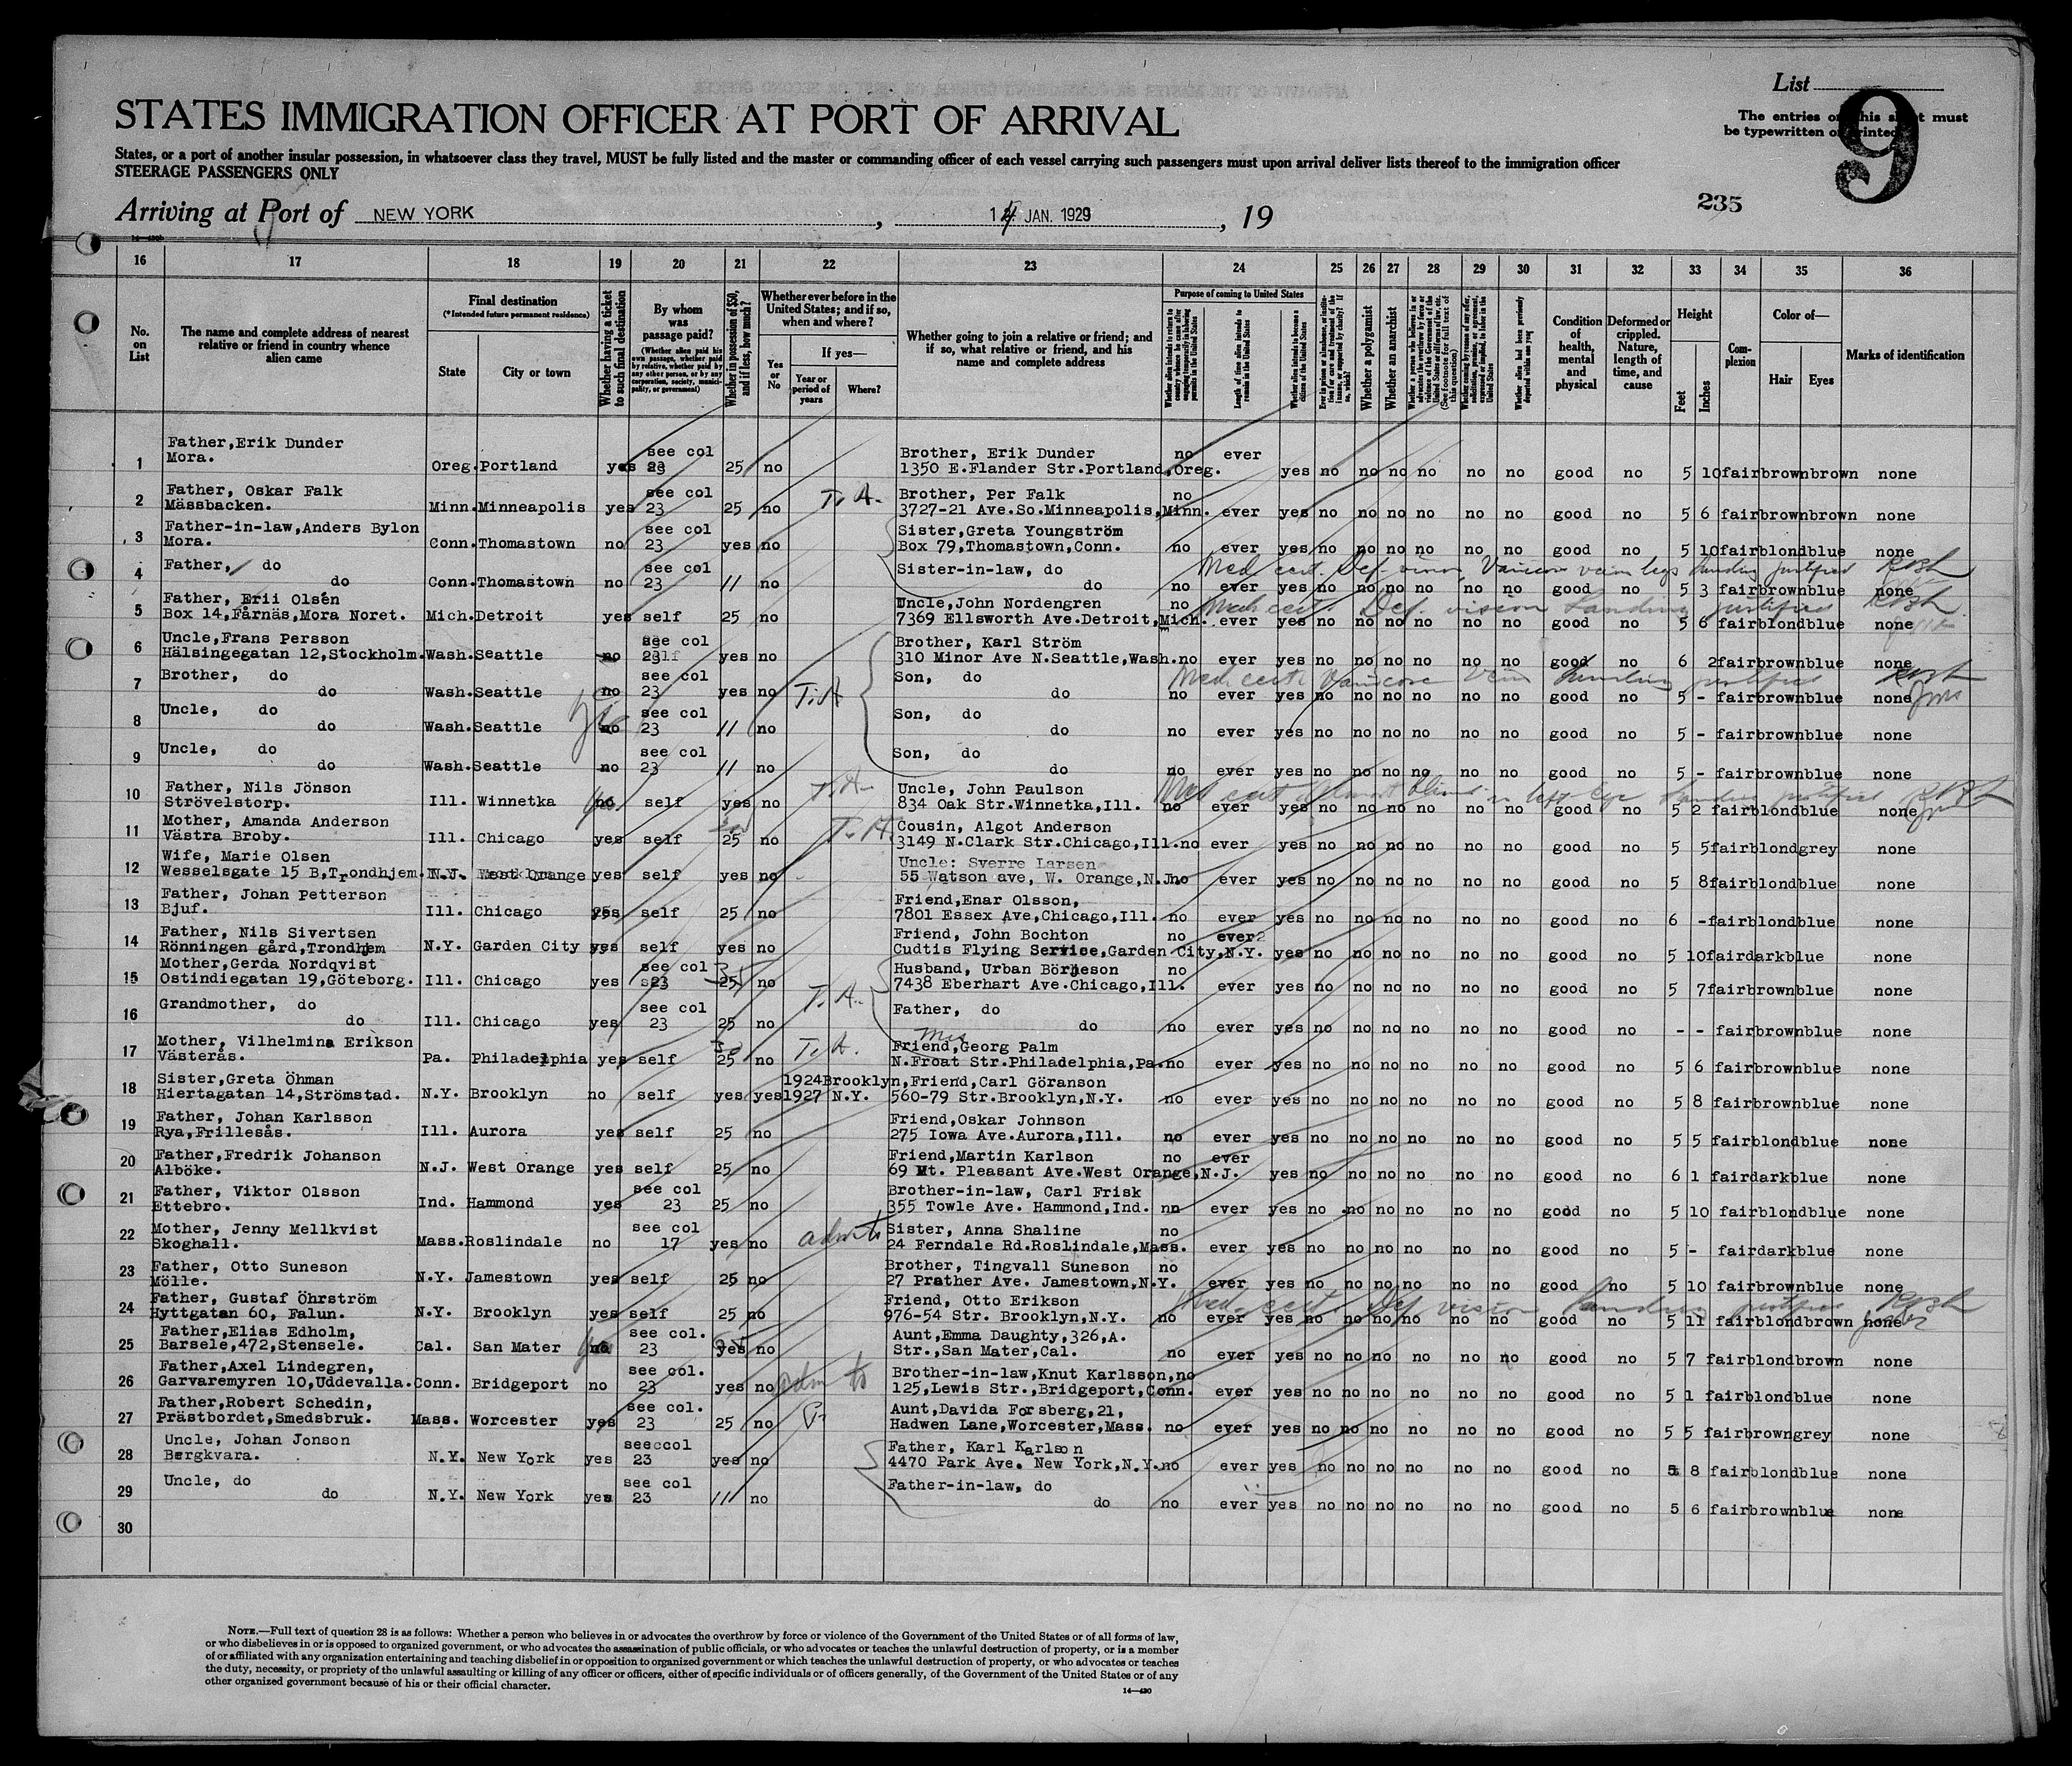 List
9
The entries on this sheet must
be typewritten or printed
STATES IMMIGRATION OFFICER AT PORT OF ARRIVAL
States, or a port of another insular possession, in whatsoever class they travel, MUST be fully listed and the master or commanding officer of each vessel carrying such passengers must upon arrival deliver lists thereof to the immigration officer
STEERAGE PASSENGERS ONLY
235
Arriving at Port of NEW YORK , 14 JAN. 1929 , 19
16 17 18 19 20 21 22 23 24 25 26 27 28 29 30 31 32 33 34 35 36
No. on List
The name and complete address of nearest relative or friend in country whence alien came
Final destination
(*Intended future permanent residence)
State
City or town
Whether having a ticket to such final destination
By whom was passage paid?
(Whether alien paid his own passage, whether paid by relative, whether paid by any other person, or by any corporation, society, municipality, or government)
Whether in possession of $50, and if less, how much?
Whether ever before in the United States; and if so, when and where?
Yes or No
If yes—
Year or period of years
Where?
Whether going to join a relative or friend; and if so, what relative or friend, and his name and complete address
Purpose of coming to United States
Length of time alien intends to remain in the United States
Whether alien intends to become a citizen of the United States
Whether a polygamist
Whether an anarchist
Condition of health, mental and physical
Deformed or crippled. Nature, length of time, and cause
Height
Feet
Inches
Complexion
Color of—
Hair
Eyes
Marks of identification
Father,Erik Dunder see col Brother, Erik Dunder no ever
1 Mora. Oreg. Portland yes 23 25 no 1350 E.Flander Str.Portland,Oreg. yes no no no no no no good no 5 10 fair brown brown none
Father, Oskar Falk see col T. A. Brother, Per Falk no
2 Mässbacken. Minn. Minneapolis yes 23 25 no 3727-21 Ave.So.Minneapolis,Minn. ever yes no no no no no no good no 5 6 fair brown brown none
Father-in-law,Anders Bylon see col Sister,Greta Youngström
3 Mora. Conn. Thomastown no 23 yes no Box 79,Thomastown,Conn. no ever yes no no no no no no good no 5 10 fair blond blue none
Father, do see col Sister-in-law, do Med cert Def. vision, Varicose veins legs landing justified
4 do Conn. Thomastown no 23 // no do no ever yes no no no no no no good no 5 3 fair brown blue none
Father, Erii Olsén Uncle,John Nordengren no Med cert Def. vision Landing justified
5 Box 14,Fårnäs,Mora Noret. Mich. Detroit yes self 25 no 7369 Ellsworth Ave.Detroit,Mich. ever yes no no no no no no good no 5 6 fair blond blue none
Uncle,Frans Persson see col Brother, Karl Ström
6 Hälsingegatan 12,Stockholm. Wash. Seattle no 23 yes no 310 Minor Ave N.Seattle,Wash. no ever yes no no no no no no good no 6 2 fair brown blue none
Brother, do see col T. A Son, do Med cert Varicose Vein landing justified
7 do Wash. Seattle no 23 yes no do no ever yes no no no no no no good no 5 - fair brown blue none
Uncle, do yes see col Son, do
8 do Wash. Seattle no 23 // no do no ever yes no no no no no no good no 5 - fair brown blue none
Uncle, do see col Son, do
9 do Wash. Seattle no 23 // no do no ever yes no no no no no no good no 5 - fair brown blue none
Father, Nils Jönson T. A. Uncle, John Paulson Med cert Almost blind in left eye landing justified
10 Strövelstorp. Ill. Winnetka yes no self yes no 834 Oak Str.Winnetka,Ill. no ever yes no no no no no no good no 5 2 fair blond blue none
Mother, Amanda Anderson T. A. Cousin, Algot Anderson
11 Västra Broby. Ill. Chicago yes self 25 no 3149 N.Clark Str.Chicago,Ill. no ever yes no no no no no no good no 5 5 fair blond grey none
Wife, Marie Olsen Uncle: Sverre Larsen
12 Wesselsgate 15 B,Trondhjem. N.J. West Orange yes self yes no 55 Watson ave, W. Orange,N.J. no ever yes no no no no no no good no 5 8 fair blond blue none
Father, Johan Petterson Friend,Enar Olsson,
13 Bjuf. Ill. Chicago yes self 25 no 7801 Essex Ave,Chicago,Ill. no ever yes no no no no no no good no 6 - fair blond blue none
Father, Nils Sivertsen Friend, John Bochton no ever
14 Rönningen gård,Trondhjem N.Y. Garden City yes self yes no Cudtis Flying Service,Garden City,N.Y. yes no no no no no no good no 5 10 fair dark blue none
Mother,Gerda Nordqvist see col Husband, Urban Börjeson no
15 Ostindiegatan 19,Göteborg. Ill. Chicago yes 23 25 no 7438 Eberhart Ave.Chicago,Ill. ever yes no no no no no no good no 5 7 fair brown blue none
Grandmother, do see col T. A. Father, do
16 do Ill. Chicago yes 23 25 no do no ever yes no no no no no no good no - - fair brown blue none
Mother, Vilhelmina Erikson T. A. Mrs Friend,Georg Palm
17 Västerås. Pa. Philadelphia yes self 25 no N.Froat Str.Philadelphia,Pa. no ever yes no no no no no no good no 5 6 fair brown blue none
Sister,Greta Öhman 1924 Brooklyn, Friend,Carl Göranson
18 Hiertagatan 14,Strömstad. N.Y. Brooklyn no self yes yes 1927 N.Y. 560-79 Str.Brooklyn,N.Y. no ever yes no no no no no no good no 5 8 fair brown blue none
Father, Johan Karlsson Friend,Oskar Johnson
19 Rya,Frillesås. Ill. Aurora yes self 25 no 275 Iowa Ave.Aurora,Ill. no ever yes no no no no no no good no 5 5 fair blond blue none
Father,Fredrik Johanson Friend,Martin Karlson no ever
20 Alböke. N.J. West Orange yes self 25 no 69 Mt. Pleasant Ave.West Orange,N.J. yes no no no no no no good no 6 1 fair dark blue none
Father, Viktor Olsson see col Brother-in-law, Carl Frisk
21 Ettebro. Ind. Hammond yes 23 25 no 355 Towle Ave. Hammond,Ind. no ever yes no no no no no no good no 5 10 fair blond blue none
Mother, Jenny Mellkvist see col Sister, Anna Shaline no
22 Skoghall. Mass. Roslindale no 17 yes no 24 Ferndale Rd.Roslindale,Mass. ever yes no no no no no no good no 5 - fair dark blue none
Father, Otto Suneson Brother, Tingvall Suneson no
23 Mölle. N.Y. Jamestown yes self 25 no 27 Prather Ave. Jamestown,N.Y. ever yes no no no no no no good no 5 10 fair brown blue none
Father, Gustaf Öhrström Friend, Otto Erikson Med. cert. Def vision Landing justified
24 Hyttgatan 60, Falun. N.Y. Brooklyn yes self 25 no 976-54 Str. Brooklyn,N.Y. no ever yes no no no no no no good no 5 11 fair blond brown none
Father,Elias Edholm, see col. Aunt,Emma Daughty,326,A.
25 Barsele,472,Stensele. Cal. San Mater yes 23 yes no Str.,San Mater,Cal. no ever yes no no no no no no good no 5 7 fair blond brown none
Father,Axel Lindegren, see col. Brother-in-law,Knut Karlsson, no
26 Garvaremyren 10,Uddevalla. Conn. Bridgeport no 23 yes no 125,Lewis Str.,Bridgeport,Conn. ever yes no no no no no no good no 5 1 fair blond blue none
Father,Robert Schedin, see col. Aunt,Davida Forsberg,21,
27 Prästbordet,Smedsbruk. Mass. Worcester yes 23 25 no Hadwen Lane,Worcester,Mass. no ever yes no no no no no no good no 5 5 fair brown grey none
Uncle, Johan Jonson seeccol Father, Karl Karlson
28 Bergkvara. N.Y. New York yes 23 yes no 4470 Park Ave. New York,N.Y. no ever yes no no no no no no good no 5 8 fair blond blue none
Uncle, do see col Father-in-law, do
29 do N.Y. New York yes 23 // no do no ever yes no no no no no no good no 5 6 fair brown blue none
30
NOTE.—Full text of question 28 is as follows: Whether a person who believes in or advocates the overthrow by force or violence of the Government of the United States or of all forms of law,
or who disbelieves in or is opposed to organized government, or who advocates the assassination of public officials, or who advocates or teaches the unlawful destruction of property, or is a member
of or affiliated with any organization entertaining and teaching disbelief in or opposition to organized government or which teaches the unlawful destruction of property, or who advocates or teaches
the duty, necessity, or propriety of the unlawful assaulting or killing of any officer or officers, either of specific individuals or of officers generally, of the Government of the United States or of any
other organized government because of his or their official character.
14—430